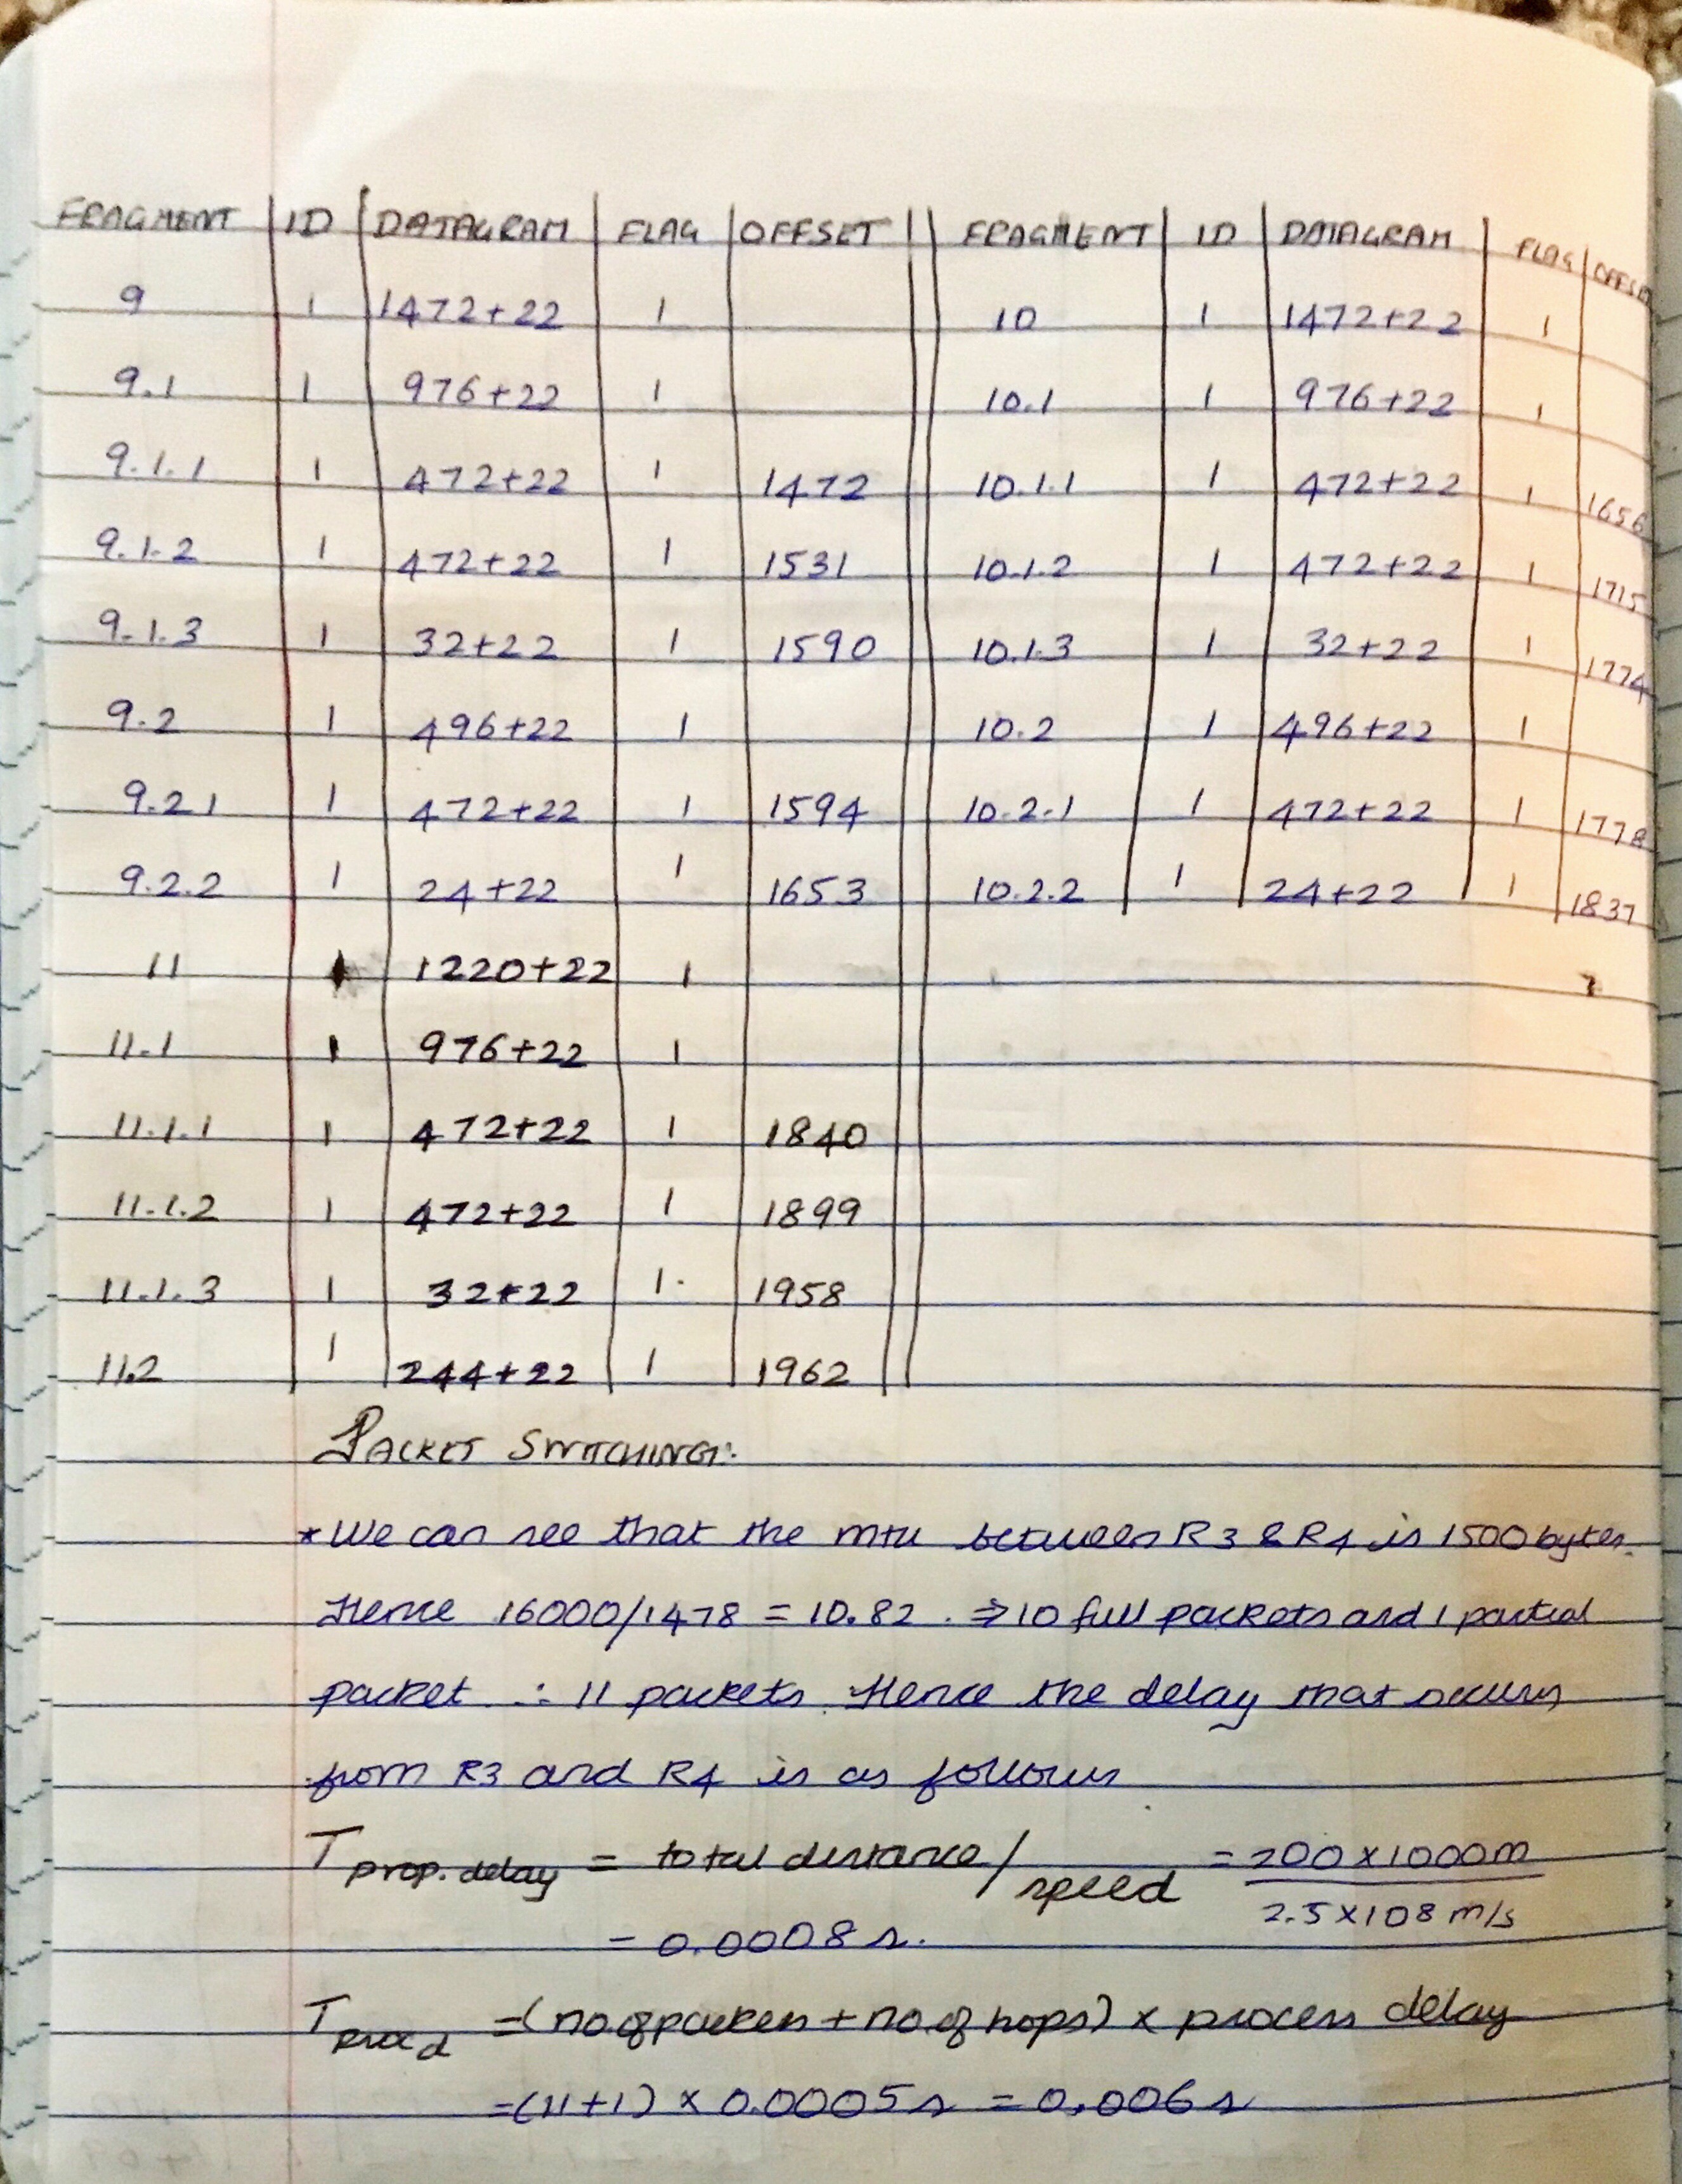 FRAGMENT ID DATAGRAM FLAG OFFSET FRAGMENT ID DATAGRAM FLAG OFFSET
9 1 1472+22 1 10 1 1472+22 1
9.1 1 976+22 1 10.1 1 976+22 1
9.1.1 1 472+22 1 1472 10.1.1 1 472+22 1 1656
9.1.2 1 472+22 1 1531 10.1.2 1 472+22 1 1715
9.1.3 1 32+22 1 1590 10.1.3 1 32+22 1 1774
9.2 1 496+22 1 10.2 1 496+22 1
9.2.1 1 472+22 1 1594 10.2.1 1 472+22 1 1778
9.2.2 1 24+22 1 1653 10.2.2 1 24+22 1 1837
11 1 1220+22 1
11.1 1 976+22 1
11.1.1 1 472+22 1 1840
11.1.2 1 472+22 1 1899
11.1.3 1 32+22 1. 1958
11.2 1 244+22 1 1962
PACKET SWITCHING:
*We can see that the mtu between R3 & R4 is 1500 bytes.
Hence 16000/1478 = 10.82 . ⇒ 10 full packets and 1 partial
packet ∴ 11 packets. Hence the delay that occurs
from R3 and R4 is as follows
T prop. delay = total distance / speed = 200 x 1000m / 2.5 x 108 m/s
= 0.0008 s.
T proc d = (no.of packets + no.of hops) x process delay
= (11+1) x 0.0005 s = 0.006 s